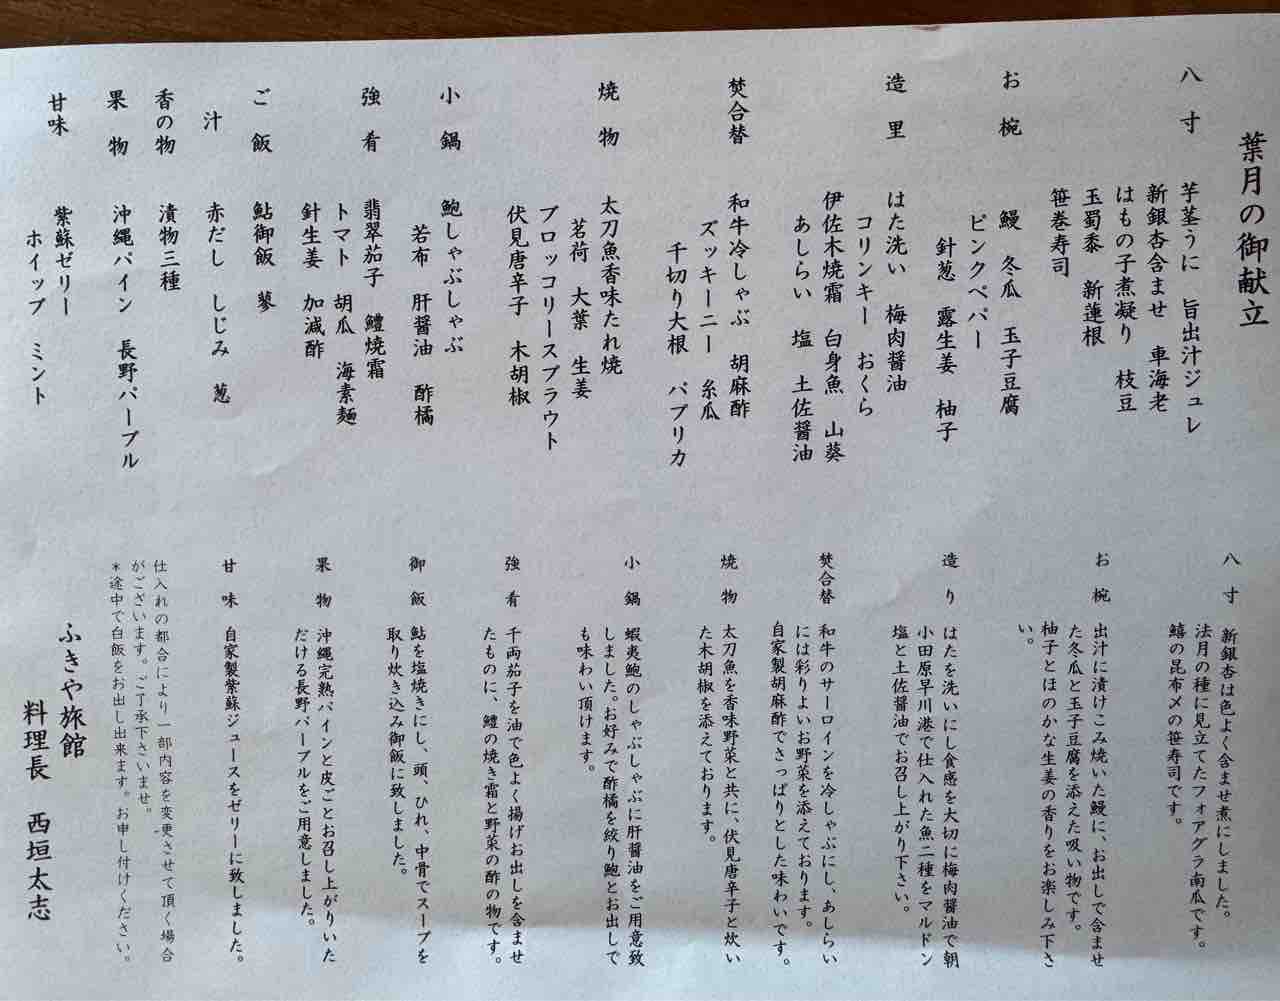 葉月の御献立
八寸 芋茎うに 旨出汁ジュレ
新銀杏含ませ 車海老
はもの子煮凝り 枝豆
玉蜀黍 新蓮根
笹巻寿司
お椀 鰻 冬瓜 玉子豆腐
ピンクペパー
針葱 露生姜 柚子
造里 はた洗い 梅肉醤油
コリンキー おくら
伊佐木焼霜 白身魚 山葵
あしらい 塩 土佐醤油
焚合替 和牛冷しゃぶ 胡麻酢
ズッキーニー 糸瓜
千切り大根 パプリカ
焼物 太刀魚香味たれ焼
茗荷 大葉 生姜
ブロッコリースプラウト
伏見唐辛子 木胡椒
小鍋 鮑しゃぶしゃぶ
若布 肝醤油 酢橘
強肴 翡翠茄子 鱧焼霜
トマト 胡瓜 海素麺
針生姜 加減酢
ご飯 鮎御飯 蓼
汁 赤だし しじみ 葱
香の物 漬物三種
果物 沖縄パイン 長野パープル
甘味 紫蘇ゼリー
ホイップ ミント
八寸 新銀杏は色よく含ませ煮にしました。
法月の種に見立てたフォアグラ南瓜です。
鱚の昆布〆の笹寿司です。
お椀 出汁に漬けこみ焼いた鰻に、お出しで含ませ
た冬瓜と玉子豆腐を添えた吸い物です。
柚子とほのかな生姜の香りをお楽しみ下さ
い。
造り はたを洗いにし食感を大切に梅肉醤油で朝
小田原早川港で仕入れた魚二種をマルドン
塩と土佐醤油でお召し上がり下さい。
焚合替 和牛のサーロインを冷しゃぶにし、あしらい
には彩りよいお野菜を添えております。
自家製胡麻酢でさっぱりとした味わいです。
焼物 太刀魚を香味野菜と共に、伏見唐辛子と炊い
た木胡椒を添えております。
小鍋 蝦夷鮑のしゃぶしゃぶに肝醤油をご用意致
しました。お好みで酢橘を絞り鮑とお出しで
も味わい頂けます。
強肴 千両茄子を油で色よく揚げお出しを含ませ
たものに、鱧の焼き霜と野菜の酢の物です。
御飯 鮎を塩焼きにし、頭、ひれ、中骨でスープを
取り炊き込み御飯に致しました。
果物 沖縄完熟パインと皮ごとお召し上がりいた
だける長野パープルをご用意しました。
甘味 自家製紫蘇ジュースをゼリーに致しました。
仕入れの都合により一部内容を変更させて頂く場合
がございます。ご了承下さいませ。
＊途中で白飯をお出し出来ます。お申し付けください。
ふきや旅館
料理長 西垣太志